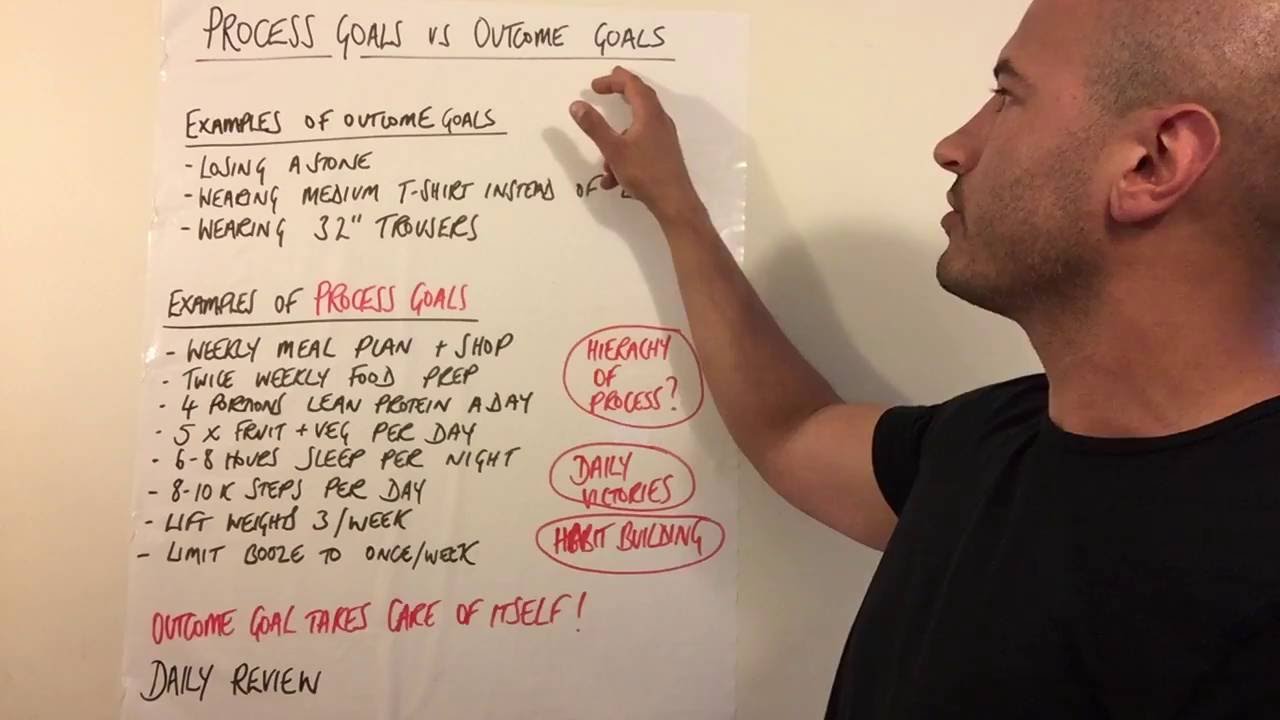 PROCESS GOALS VS OUTCOME GOALS
EXAMPLES OF OUTCOME GOALS
- LOSING A STONE
- WEARING MEDIUM T-SHIRT INSTEAD OF
- WEARING 32" TROUSERS
EXAMPLES OF PROCESS GOALS
- WEEKLY MEAL PLAN + SHOP
- TWICE WEEKLY FOOD PREP
- 4 PORTIONS LEAN PROTEIN A DAY
- 5 X FRUIT + VEG PER DAY
- 6-8 HOURS SLEEP PER NIGHT
- 8-10K STEPS PER DAY
- LIFT WEIGHTS 3/WEEK
- LIMIT BOOZE TO ONCE/WEEK
HIERACHY
OF
PROCESS?
DAILY
VICTORIES
HABIT BUILDING
OUTCOME GOAL TAKES CARE OF ITSELF!
DAILY REVIEW